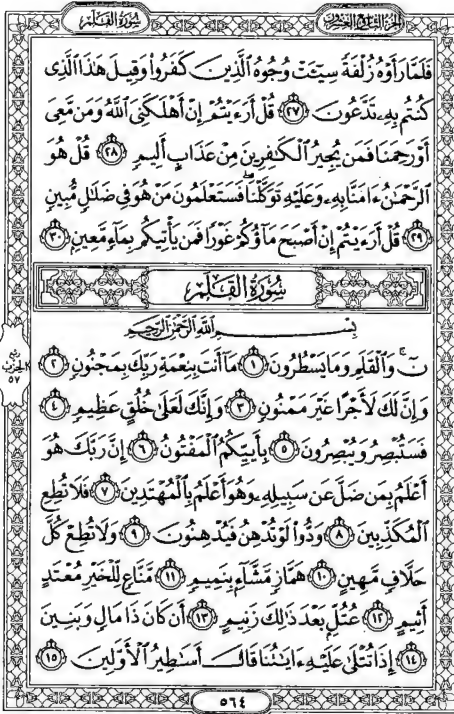 الجزء التاسع والعشرون سورة القلم
فَلَمَّا رَأَوْهُ زُلْفَةً سِيٓـَٔتْ وُجُوهُ ٱلَّذِينَ كَفَرُوا۟ وَقِيلَ هَٰذَا ٱلَّذِى
كُنتُم بِهِۦ تَدَّعُونَ ٢٧ قُلْ أَرَءَيْتُمْ إِنْ أَهْلَكَنِىَ ٱللَّهُ وَمَن مَّعِىَ
أَوْ رَحِمَنَا فَمَن يُجِيرُ ٱلْكَٰفِرِينَ مِنْ عَذَابٍ أَلِيمٍ ٢٨ قُلْ هُوَ
ٱلرَّحْمَٰنُ ءَامَنَّا بِهِۦ وَعَلَيْهِ تَوَكَّلْنَا ۖ فَسَتَعْلَمُونَ مَنْ هُوَ فِى ضَلَٰلٍ مُّبِينٍ
٢٩ قُلْ أَرَءَيْتُمْ إِنْ أَصْبَحَ مَآؤُكُمْ غَوْرًا فَمَن يَأْتِيكُم بِمَآءٍ مَّعِينٍۭ ٣٠
سُورَةُ القَلَمِ
بِسْمِ ٱللَّهِ ٱلرَّحْمَٰنِ ٱلرَّحِيمِ
نٓ ۚ وَٱلْقَلَمِ وَمَا يَسْطُرُونَ ١ مَآ أَنتَ بِنِعْمَةِ رَبِّكَ بِمَجْنُونٍ ٢
ربع
الحزب
٥٧
وَإِنَّ لَكَ لَأَجْرًا غَيْرَ مَمْنُونٍ ٣ وَإِنَّكَ لَعَلَىٰ خُلُقٍ عَظِيمٍ ٤
فَسَتُبْصِرُ وَيُبْصِرُونَ ٥ بِأَييِّكُمُ ٱلْمَفْتُونُ ٦ إِنَّ رَبَّكَ هُوَ
أَعْلَمُ بِمَن ضَلَّ عَن سَبِيلِهِۦ وَهُوَ أَعْلَمُ بِٱلْمُهْتَدِينَ ٧ فَلَا تُطِعِ
ٱلْمُكَذِّبِينَ ٨ وَدُّوا۟ لَوْ تُدْهِنُ فَيُدْهِنُونَ ٩ وَلَا تُطِعْ كُلَّ
حَلَّافٍ مَّهِينٍ ١٠ هَمَّازٍ مَّشَّآءٍۭ بِنَمِيمٍ ١١ مَّنَّاعٍ لِّلْخَيْرِ مُعْتَدٍ
أَثِيمٍ ١٢ عُتُلٍّۭ بَعْدَ ذَٰلِكَ زَنِيمٍ ١٣ أَن كَانَ ذَا مَالٍ وَبَنِينَ
١٤ إِذَا تُتْلَىٰ عَلَيْهِ ءَايَٰتُنَا قَالَ أَسَٰطِيرُ ٱلْأَوَّلِينَ ١٥
٥٦٤